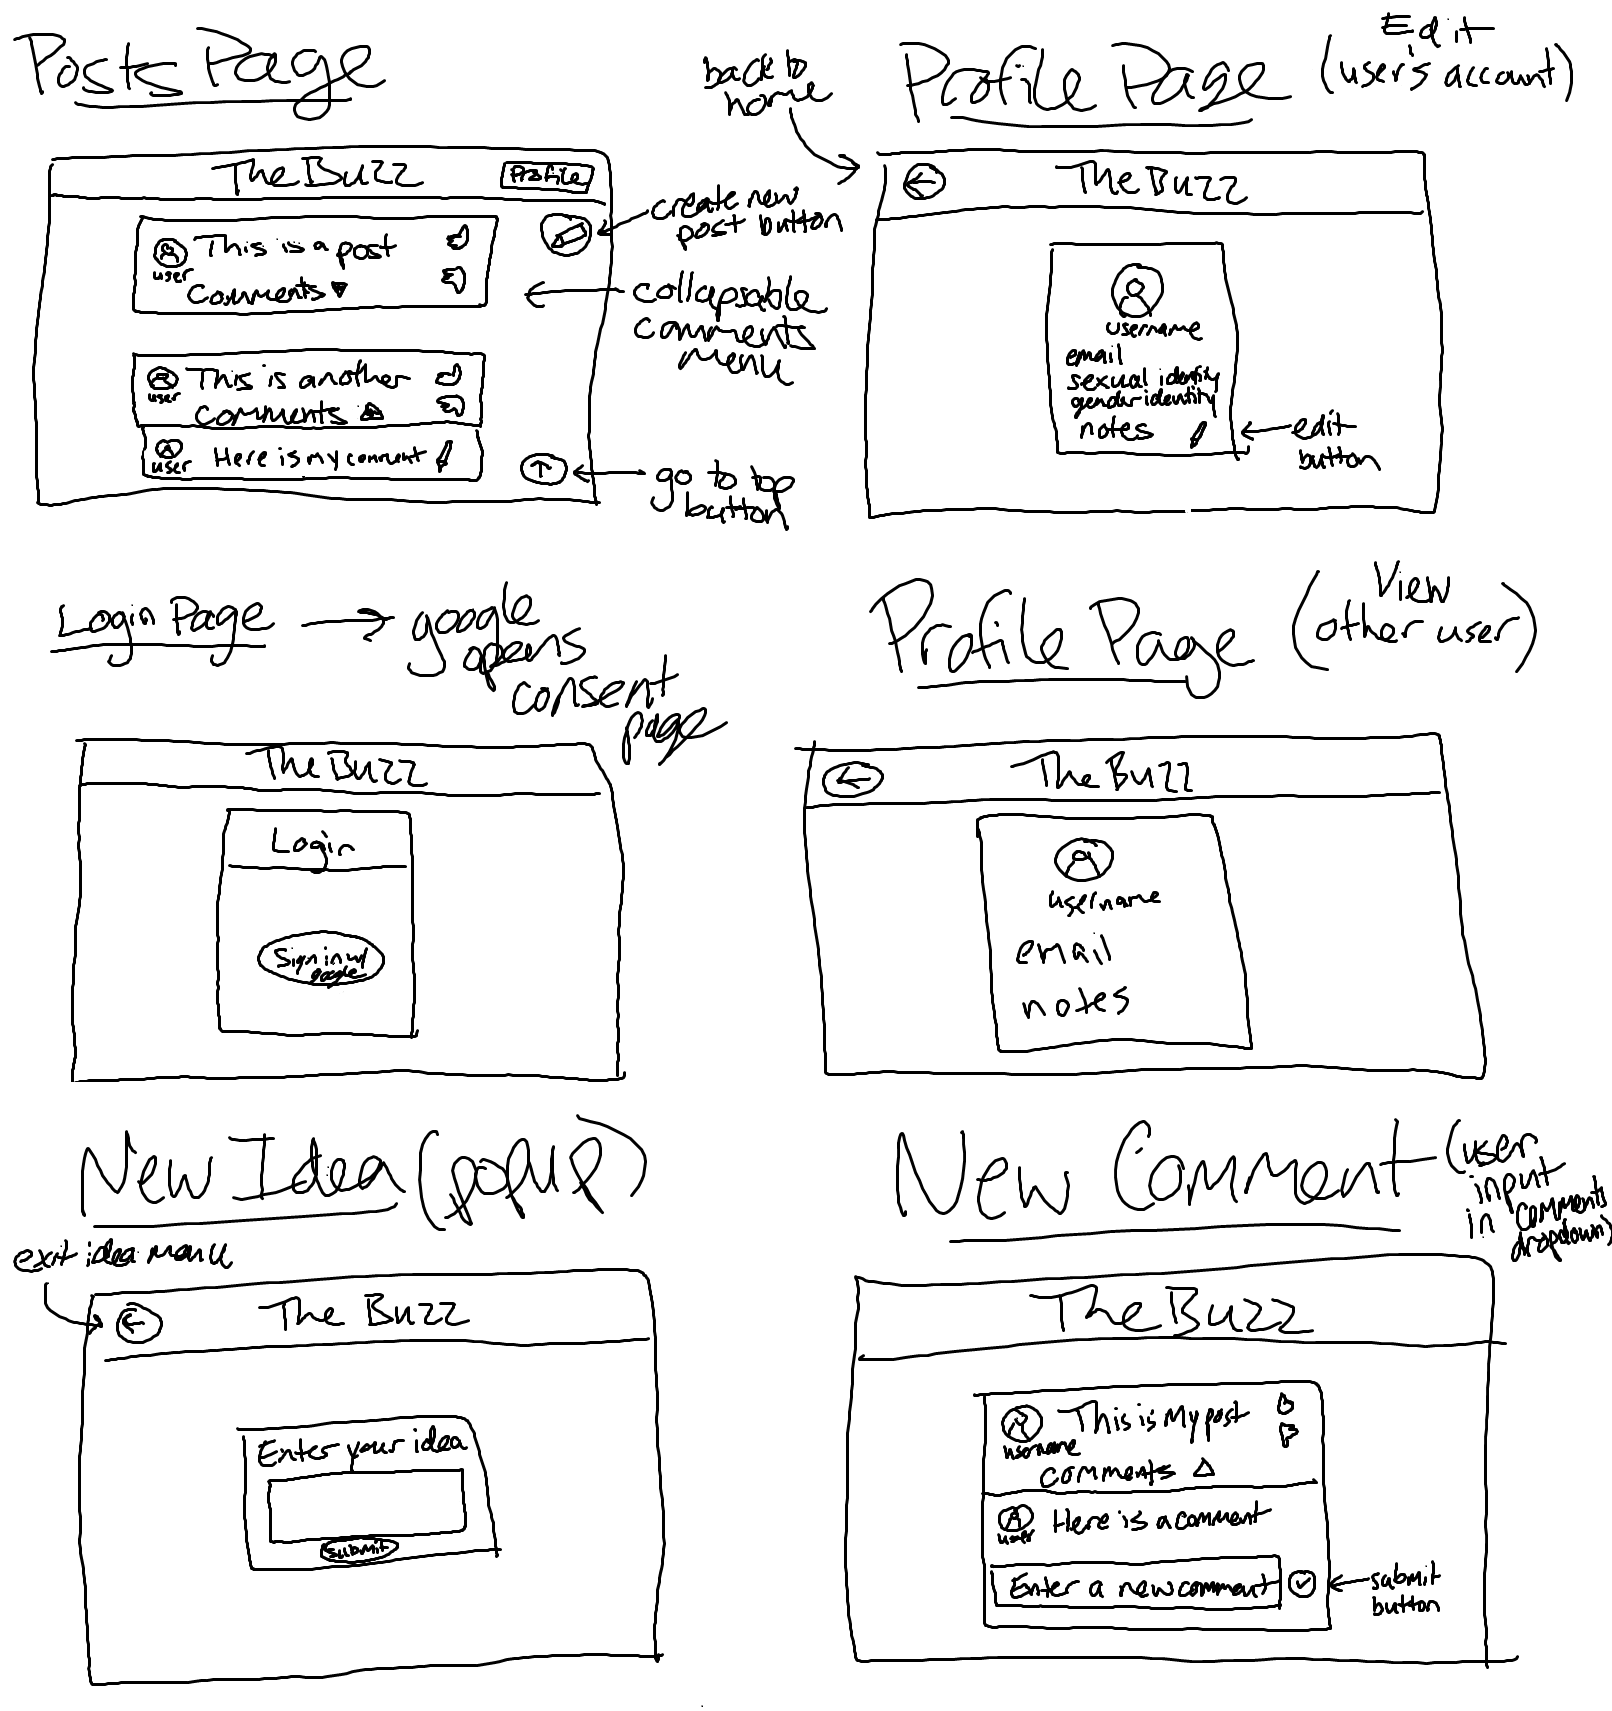 Posts Page
The Buzz
Profile
This is a post
user
Comments
This is another
user
comments
user
Here is my comment
create new
post button
collapsable
comments
menu
go to top
button
back to
home
Profile Page
Edit
(user's account)
The Buzz
username
email
sexual identity
gender identity
notes
edit
button
Login Page
google
opens
consent
page
The Buzz
Login
Sign in w/
google
Profile Page
(View
other user)
The Buzz
username
email
notes
New Idea (popup)
exit idea menu
The Buzz
Enter your idea
submit
New Comment
(user
input
in comments
dropdown)
The Buzz
This is My post
username
comments
Here is a comment
user
Enter a new comment
submit
button